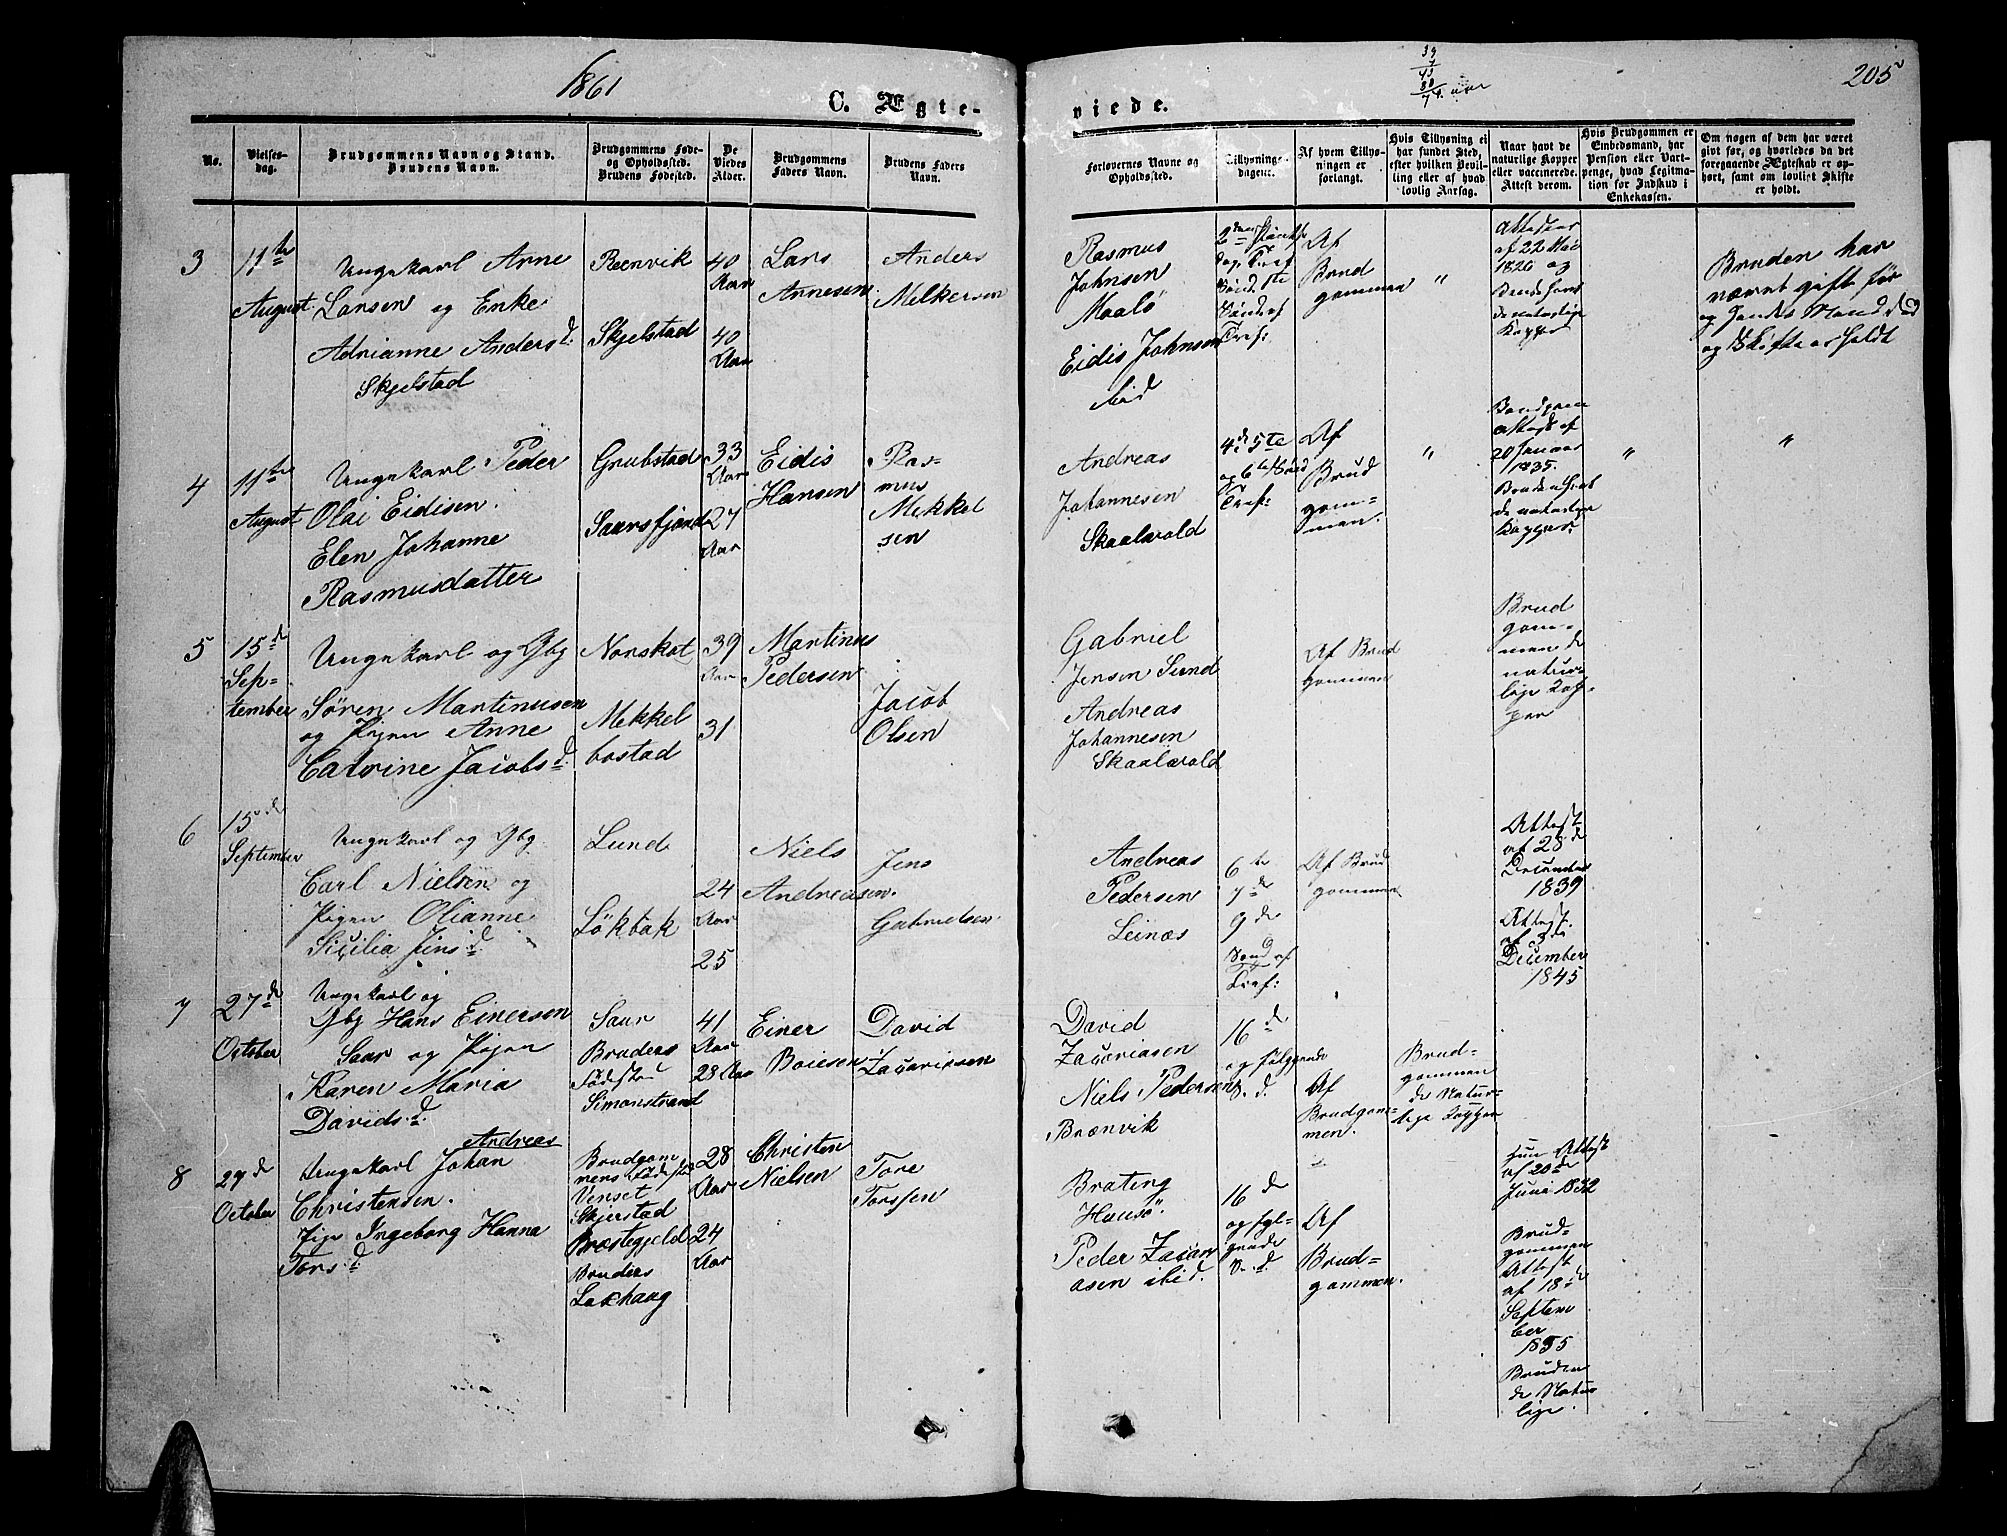 1861
C. Ægte-
viede.
205
39
7
43
88
No.
Vielses-
dag.
Brudgommens Navn og Stand.
Brudens Navn.
Brudgommens Føde-
og Opholdssted.
Brudens Fødested.
De
Viedes
Alder.
Brudgommens
Faders Navn.
Brudens Faders
Navn.
Forlovernes Navne og
Opholdssted.
Tillysnings-
dagene.
Af hvem Tillys-
ningen er
forlangt.
Hvis Tillysning ei
har fundet Sted,
efter hvilken Bevil-
ling eller af hvad
lovlig Aarsag.
Naar havt de
naturlige Kopper
eller vaccinerede.
Attest derom.
Hvis Brudgommen er
Embedsmand, har
Pension eller Vart-
penge, hvad Legitima-
tion for Indskud i
Enkekassen.
Om nogen af dem har været
givt før, og hvorledes da det
foregaaende Ægteskab er op-
hørt, samt om lovligt Skifte
er holdt.
3
11te
August
Ungekarl Arne
Larsen og Enke
Adrianne Andersd.
Skjelstad
Reenvik
Skjelstad
40
Aar
40
Aar
Lars
Arnesen
Anders
Melkersen
Rasmus
Johnsen
Maalö
Eidis Johnsen
ibid
Af
Brud
gommen
"
Attester
af 22 Mai
1820 og
de naturlige
Kopper
Bruden har
været gift før
og hendes Mand død
og Skifte er holdt
4
11te
August
Ungekarl Peder
Olai Eidisen.
Elen Johanne
Rasmusdatter
Grubstad
Saursfjord
33
Aar
27
Aar
Eidis
Hansen
Ras-
mus
Mekkel
sen
Andreas
Johannesen
Skaalvold
4de 5te
og 6te Sönd
Tref:
Af
Brud
gom-
men.
"
Brudgom
Attest af
20 Januar
1835.
Bruden havt
de naturlige
Kopper
"
"
5
15d
Sep-
tember
Ungekarl og Gbg
Sören Martinusen
og Pigen Anne
Catrine Jacobsd.
Norskot
Mekkel
bostad
39
Aar
31
Martinus
Pedersen
Jacob
Olsen
Gabriel
Jensen Sund
Andreas
Johannesen
Skaalvold
Af Brud
gommen
Brud
gom-
men de
natur-
lige Kop-
per
6
15de
September
Ungekarl og Gbg
Carl Nielsen og
Pigen Olianne
Sicilia Jensd.
Lund
Lökbak
24
Aar
25
Niels
Andreasen.
Jens
Gabrielsen
Andreas
Pedersen
Leinæs
6te
7de
9de
Sönd af
Tref:
Af Brud
gommen
Attest
af 28d
December
1839
Attest
af 3de
December
1845
7
27d
October
Ungekarl og
Gbg Hans Einersen
Saur og Pigen
Karen Maria
Davidsd.
Saur
Brudens
Födested
Simonstrand
41
Aar
28 Aar
Einer
Boiesen
David
Zacariasen
David
Zacariasen
Niels Pedersen
Brænvik
16d
og fölgende
S. d.
Af
Brudgom-
men.
Brud-
gommen
de Natur-
lige Kopper
8
29d
October
Andreas
Ungekarl Johan
Christensen.
Pige Ingeborg Hanna
Torsd.
Brudgom
mens Födested
Venset
Skjerstad
Præstegjeld
Brudens
Laxhaug
28
Aar
24
Aar
Christen
Nielsen
Tore
Torssen
Brating
Hunsö.
Peder Zacari
asen ibid.
16d
og fyl-
gende
S. d.
Af
Brud-
gommen.
Hun Attest
af 20de
Juni 1832
Brud-
gommen
Attest
af 18d
Septem
ber
1835
Bruden
de Natur
lige.